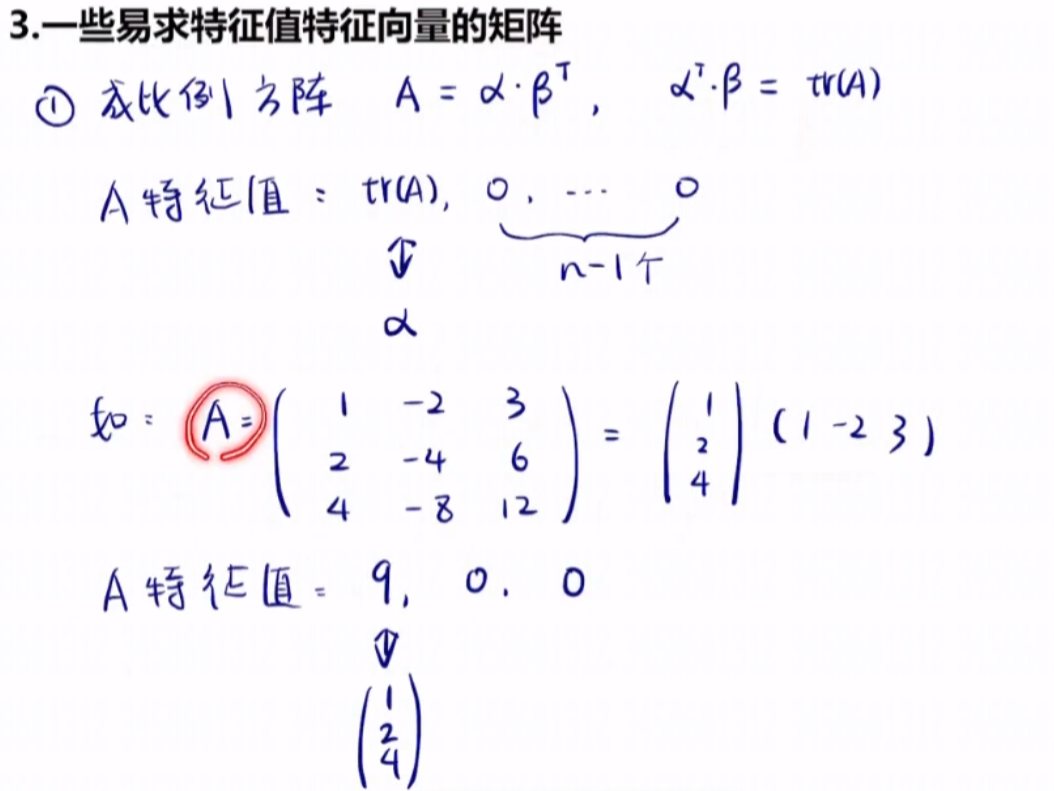 3.一些易求特征值特征向量的矩阵
① 成比例方阵 A = α·βᵀ, αᵀ·β = tr(A)
A 特征值: tr(A), 0, ··· 0
⇕ n-1个
α
如: A = ( 1 -2 3 ) = ( 1 ) ( 1 -2 3 )
2 -4 6 2
4 -8 12 4
A 特征值: 9, 0, 0
⇕
( 1
2
4 )